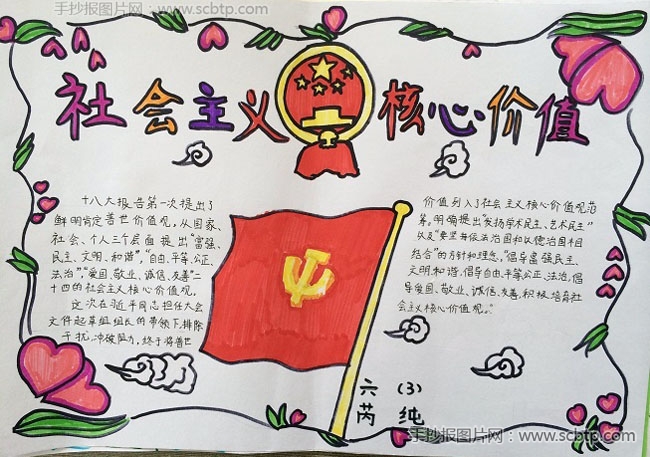 手抄报图片网：www.scbtp.com
社会主义核心价值
十八大报告第一次提出了
鲜明肯定普世价值观，从国家、
社会、个人三个层面提出“富强、
民主、文明、和谐”，“自由、平等、公正、
法治”，“爱国、敬业、诚信、友善”二
十四的社会主义核心价值观。
这次在习近平同志担任大会
文件起草组组长的带领下，排除
干扰，冲破阻力，终于将普世
价值列入了社会主义核心价值观范
筹。明确提出“发扬学术民主、艺术民主”
以及“要坚持依法治国和以德治国相
结合”的方针和理念，“倡导富强民主、
文明和谐，倡导自由、平等公正、法治，倡
导爱国、敬业、诚信、友善，积极培育社
会主义核心价值观。”
六（3）
芮纯
手抄报图片网：www.scbtp.com